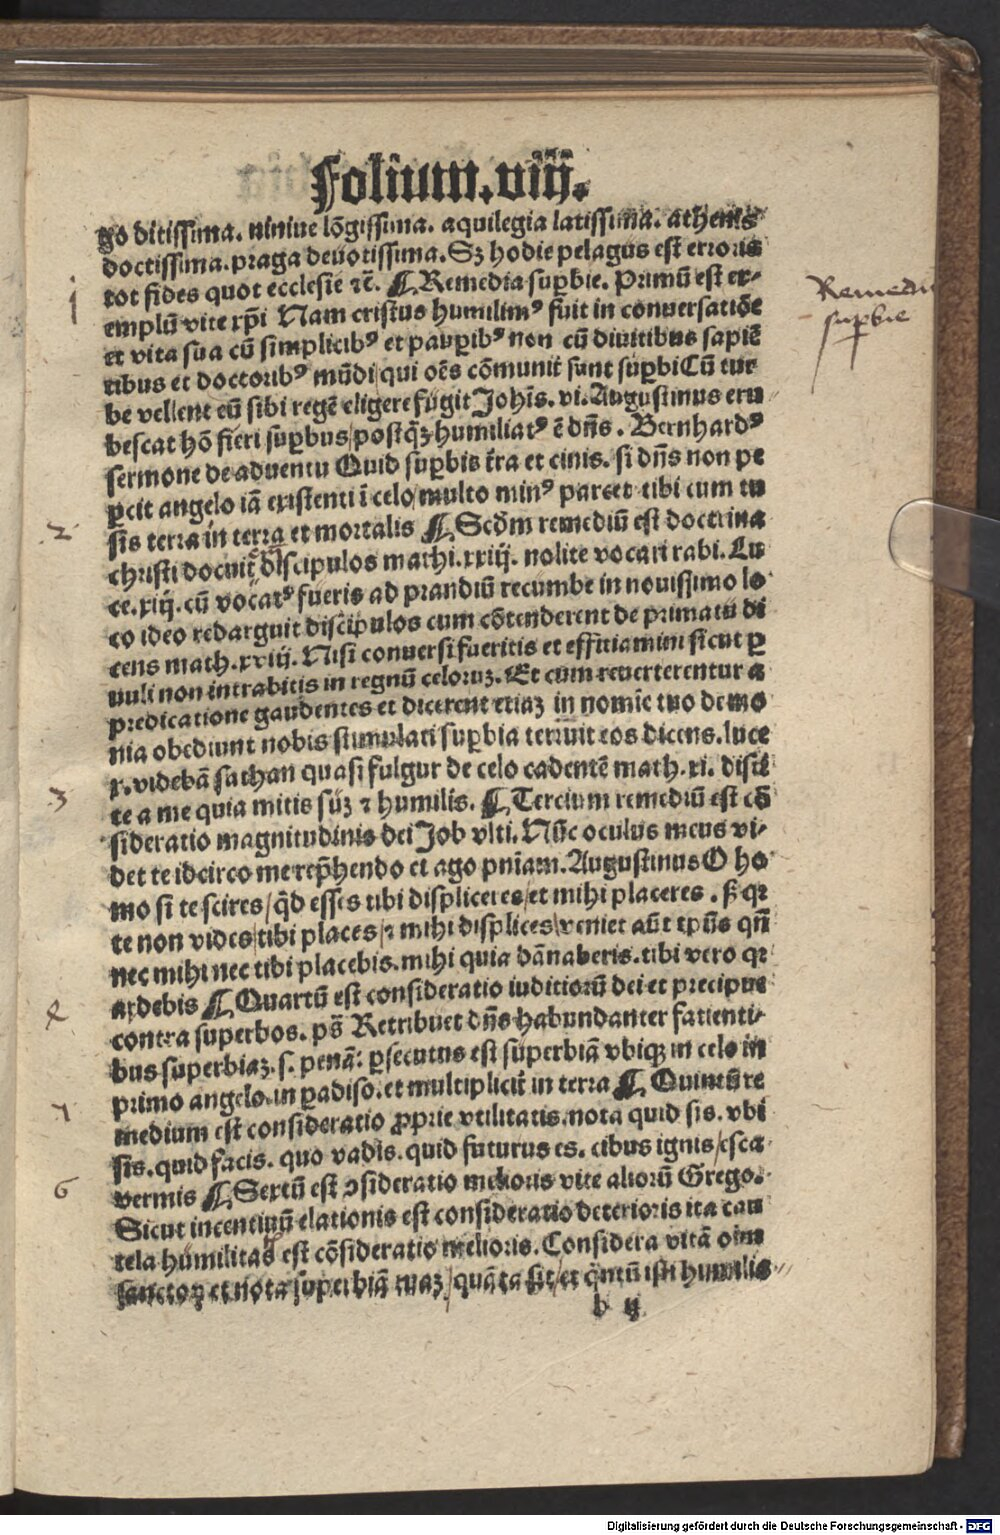 Folium.viij.
go ditissima. niniue lōgissima. aquilegia latissima. athenis
doctissima. praga deuotissima. Sꝫ hodie pelagus est erroris
tot fides quot ecclesie ⁊c̄. ¶ Remedia suꝑbie. Primū est ex-
emplū vite xp̄i Nam cristus humilimꝰ fuit in conuersatiōe
et vita sua cū simplicibꝰ et pauꝑibꝰ non cū diuitibus sapiē
tibus et doctoribꝰ mūdi/qui oēs cōmunit̄ sunt suꝑbi Cū tur
be vellent eū sibi regē eligere fugit Joh̄is. vi. Augustinus eru
bescat hō fieri suꝑbus/postq̄ꝫ humiliatꝰ ē dn̄s. Bernhardꝰ
sermone de aduentu Quid suꝑbis t̄ra et cinis. si dn̄s non pe
ꝑcit angelo iā existenti ī celo/multo minꝰ parcet tibi cum tu
sis terra in terra et mortalis ¶ Scd̄m remediū est doctrina
christi docuit̄ discipulos mathi. xxiij. nolite vocari rabi. Lu
ce. xiij. cū vocatꝰ fueris ad prandiū recumbe in nouissimo lo
co ideo redarguit discipulos cum cōtenderent de primatu di
cens math. xviij. Nisi conuersi fueritis et efficiamini sicut ꝑ
uuli non intrabitis in regnū celoruꝫ. Et cum reuerterentur a
predicatione gaudentes et dicerent etiaꝫ in nomīe tuo demo
nia obediunt nobis stimulati suꝑbia terruit eos dicens. luce
x. videbā sathan quasi fulgur de celo cadentē math. xi. disci
te a me quia mitis suꝫ ⁊ humilis. ¶ Tercium remediū est cō
sideratio magnitudinis dei Job vlti. Nūc oculus meus vi-
det te idcirco me rep̄hendo et ago pn̄iam. Augustinus O ho
mo si te scires/q̄d esses tibi displiceres/et mihi placeres. sꝫ qꝛ
te non vides/tibi places/⁊ mihi displices/veniet aūt tp̄us qn̄
nec mihi nec tibi placebis. mihi quia dānaberis. tibi vero qꝛ
ardebis ¶ Quartū est consideratio iuditiorū dei et precipue
contra superbos. ps̄ Retribuet dn̄s habundanter facienti-
bus superbiaꝫ. s. penā: ꝑsecutus est superbiā vbiqꝫ in celo in
primo angelo. in ꝑadiso. et multiplicit̄ in terra ¶ Quintū re
medium est consideratio ꝓprie vtilitatis. nota quid sis. vbi
sis. quid facis. quo vadis. quid futurus es. cibus ignis/esca
vermis ¶ Sextū est ↄsideratio melioris vite aliorū Grego.
Sicut incentiuū elationis est consideratio deterioris ita cau
tela humilitatis est cōsideratio melioris. Considera vitā oīm
sanctoꝝ et nota superbiā tuaꝫ/quāta sit/et q̄ntū isti humilis
b ij
Remedia
superbie
j
2
3
4
6
Digitalisierung gefördert durch die Deutsche Forschungsgemeinschaft - DFG